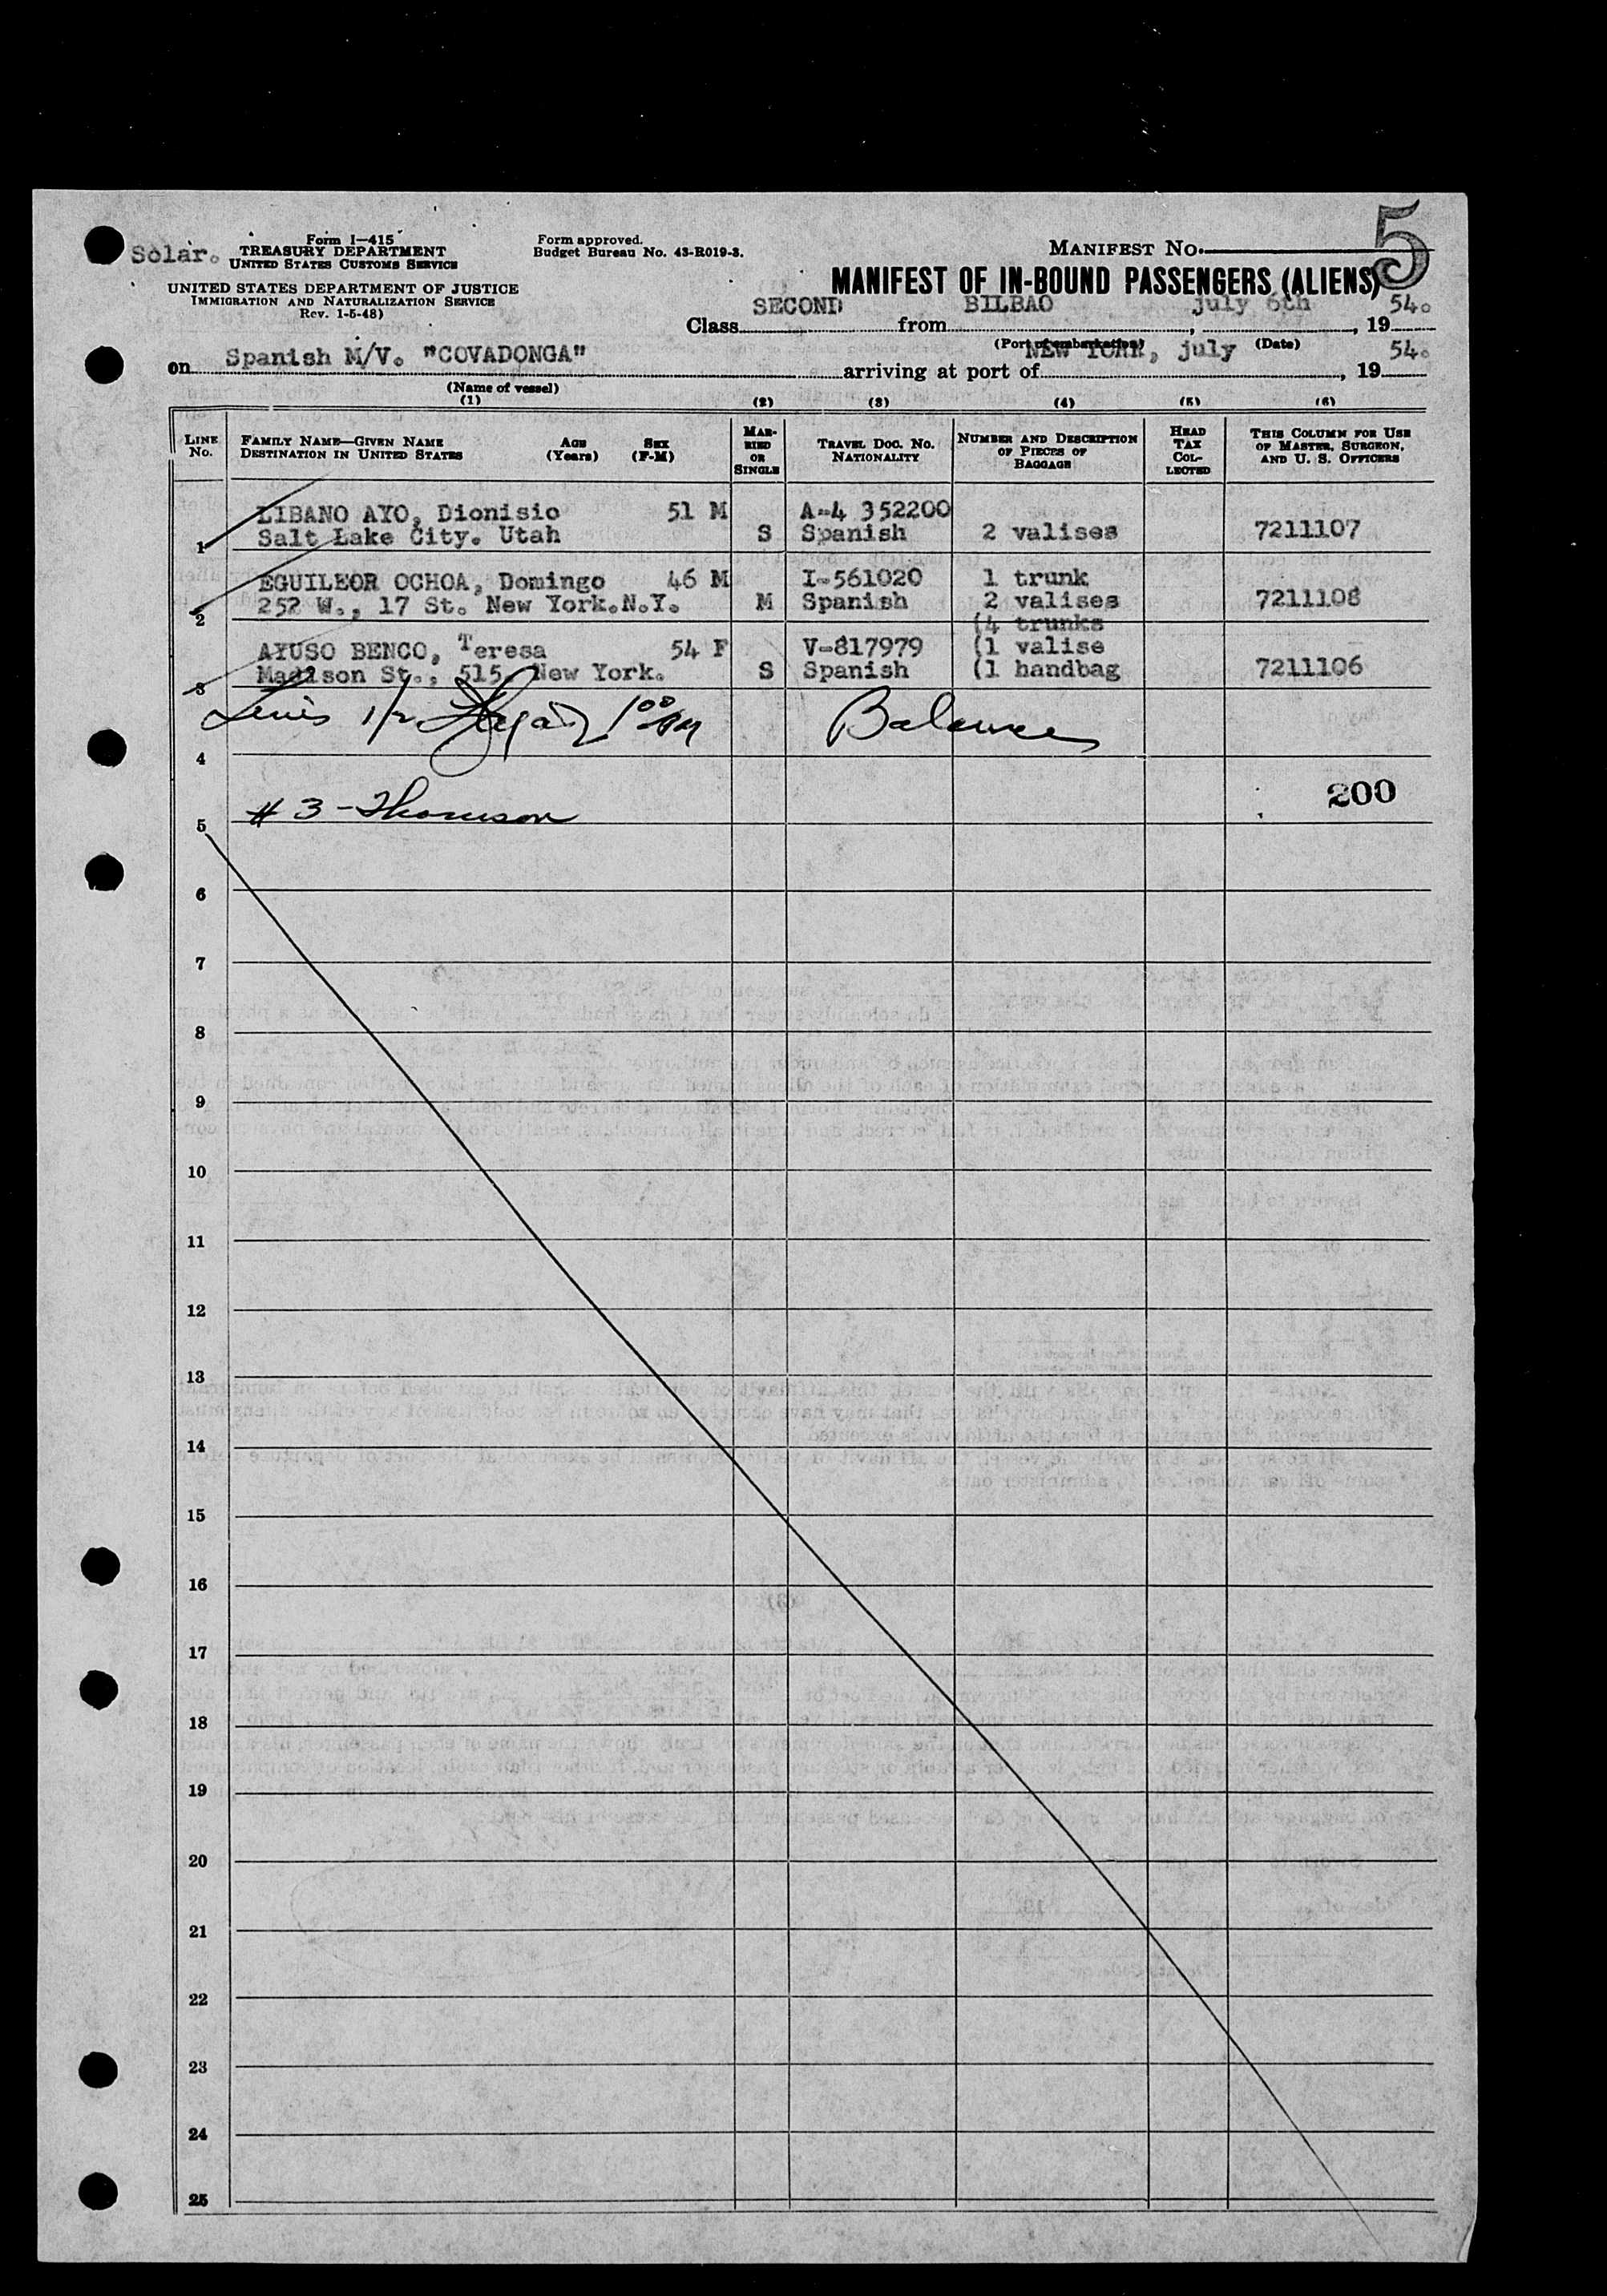 Solar.
Form I-415
TREASURY DEPARTMENT
UNITED STATES CUSTOMS SERVICE
UNITED STATES DEPARTMENT OF JUSTICE
IMMIGRATION AND NATURALIZATION SERVICE
Rev. 1-5-48)
Form approved.
Budget Bureau No. 43-R019-3.
MANIFEST No. 5
MANIFEST OF IN-BOUND PASSENGERS (ALIENS)
Class SECOND from BILBAO, july 6th, 19 54.
(Port of embarkation) (Date)
on Spanish M/V. "COVADONGA" arriving at port of NEW YORK, july, 19 54.
(Name of vessel)
(1) (2) (3) (4) (5) (6)
LINE No. FAMILY NAME—GIVEN NAME DESTINATION IN UNITED STATES AGE (Years) SEX (F-M) MARRIED OR SINGLE TRAVEL DOC. NO. NATIONALITY NUMBER AND DESCRIPTION OF PIECES OF BAGGAGE HEAD TAX COLLECTED THIS COLUMN FOR USE OF MASTER, SURGEON, AND U. S. OFFICERS
LIBANO AYO, Dionisio 51 M A-4 352200
1 Salt Lake City. Utah S Spanish 2 valises 7211107
EGUILEOR OCHOA, Domingo 46 M I-561020 1 trunk
2 252 W., 17 St. New York.N.Y. M Spanish 2 valises 7211108
(4 trunks
AYUSO BENCO, Teresa 54 F V-817979 (1 valise
3 Madison St., 515. New York. S Spanish (1 handbag 7211106
Balance
4
200
5 # 3 - Thomson
6
7
8
9
10
11
12
13
14
15
16
17
18
19
20
21
22
23
24
25